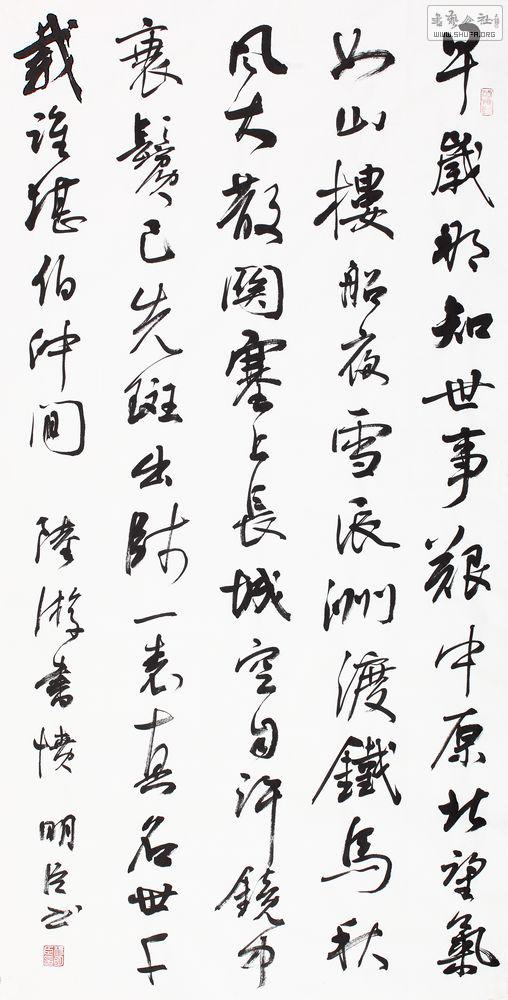 早歲那知世事艱中原北望氣
如山樓船夜雪瓜洲渡鐵馬秋
風大散關塞上長城空自許鏡中
衰鬢已先斑出師一表真名世千
載誰堪伯仲間 陸游書憤 明臣书
書藝公社
WWW.SHUFA.ORG